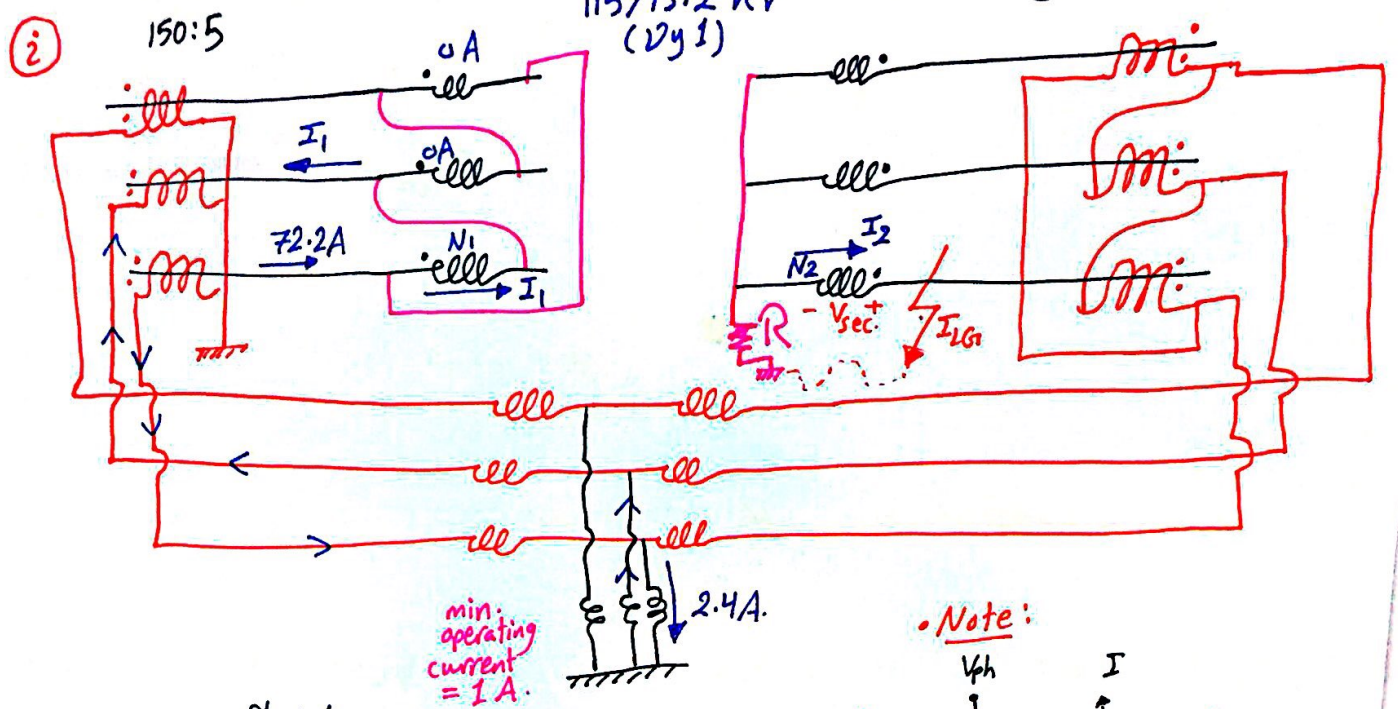 i
150:5
115/13.2 kV
(Dy1)
0A
0A
I₁
72.2A
N₁
I₁
I₂
N₂
- Vsec. +
R
I_LG
min.
operating
current
= 1 A.
2.4A.
• Note:
Vph I